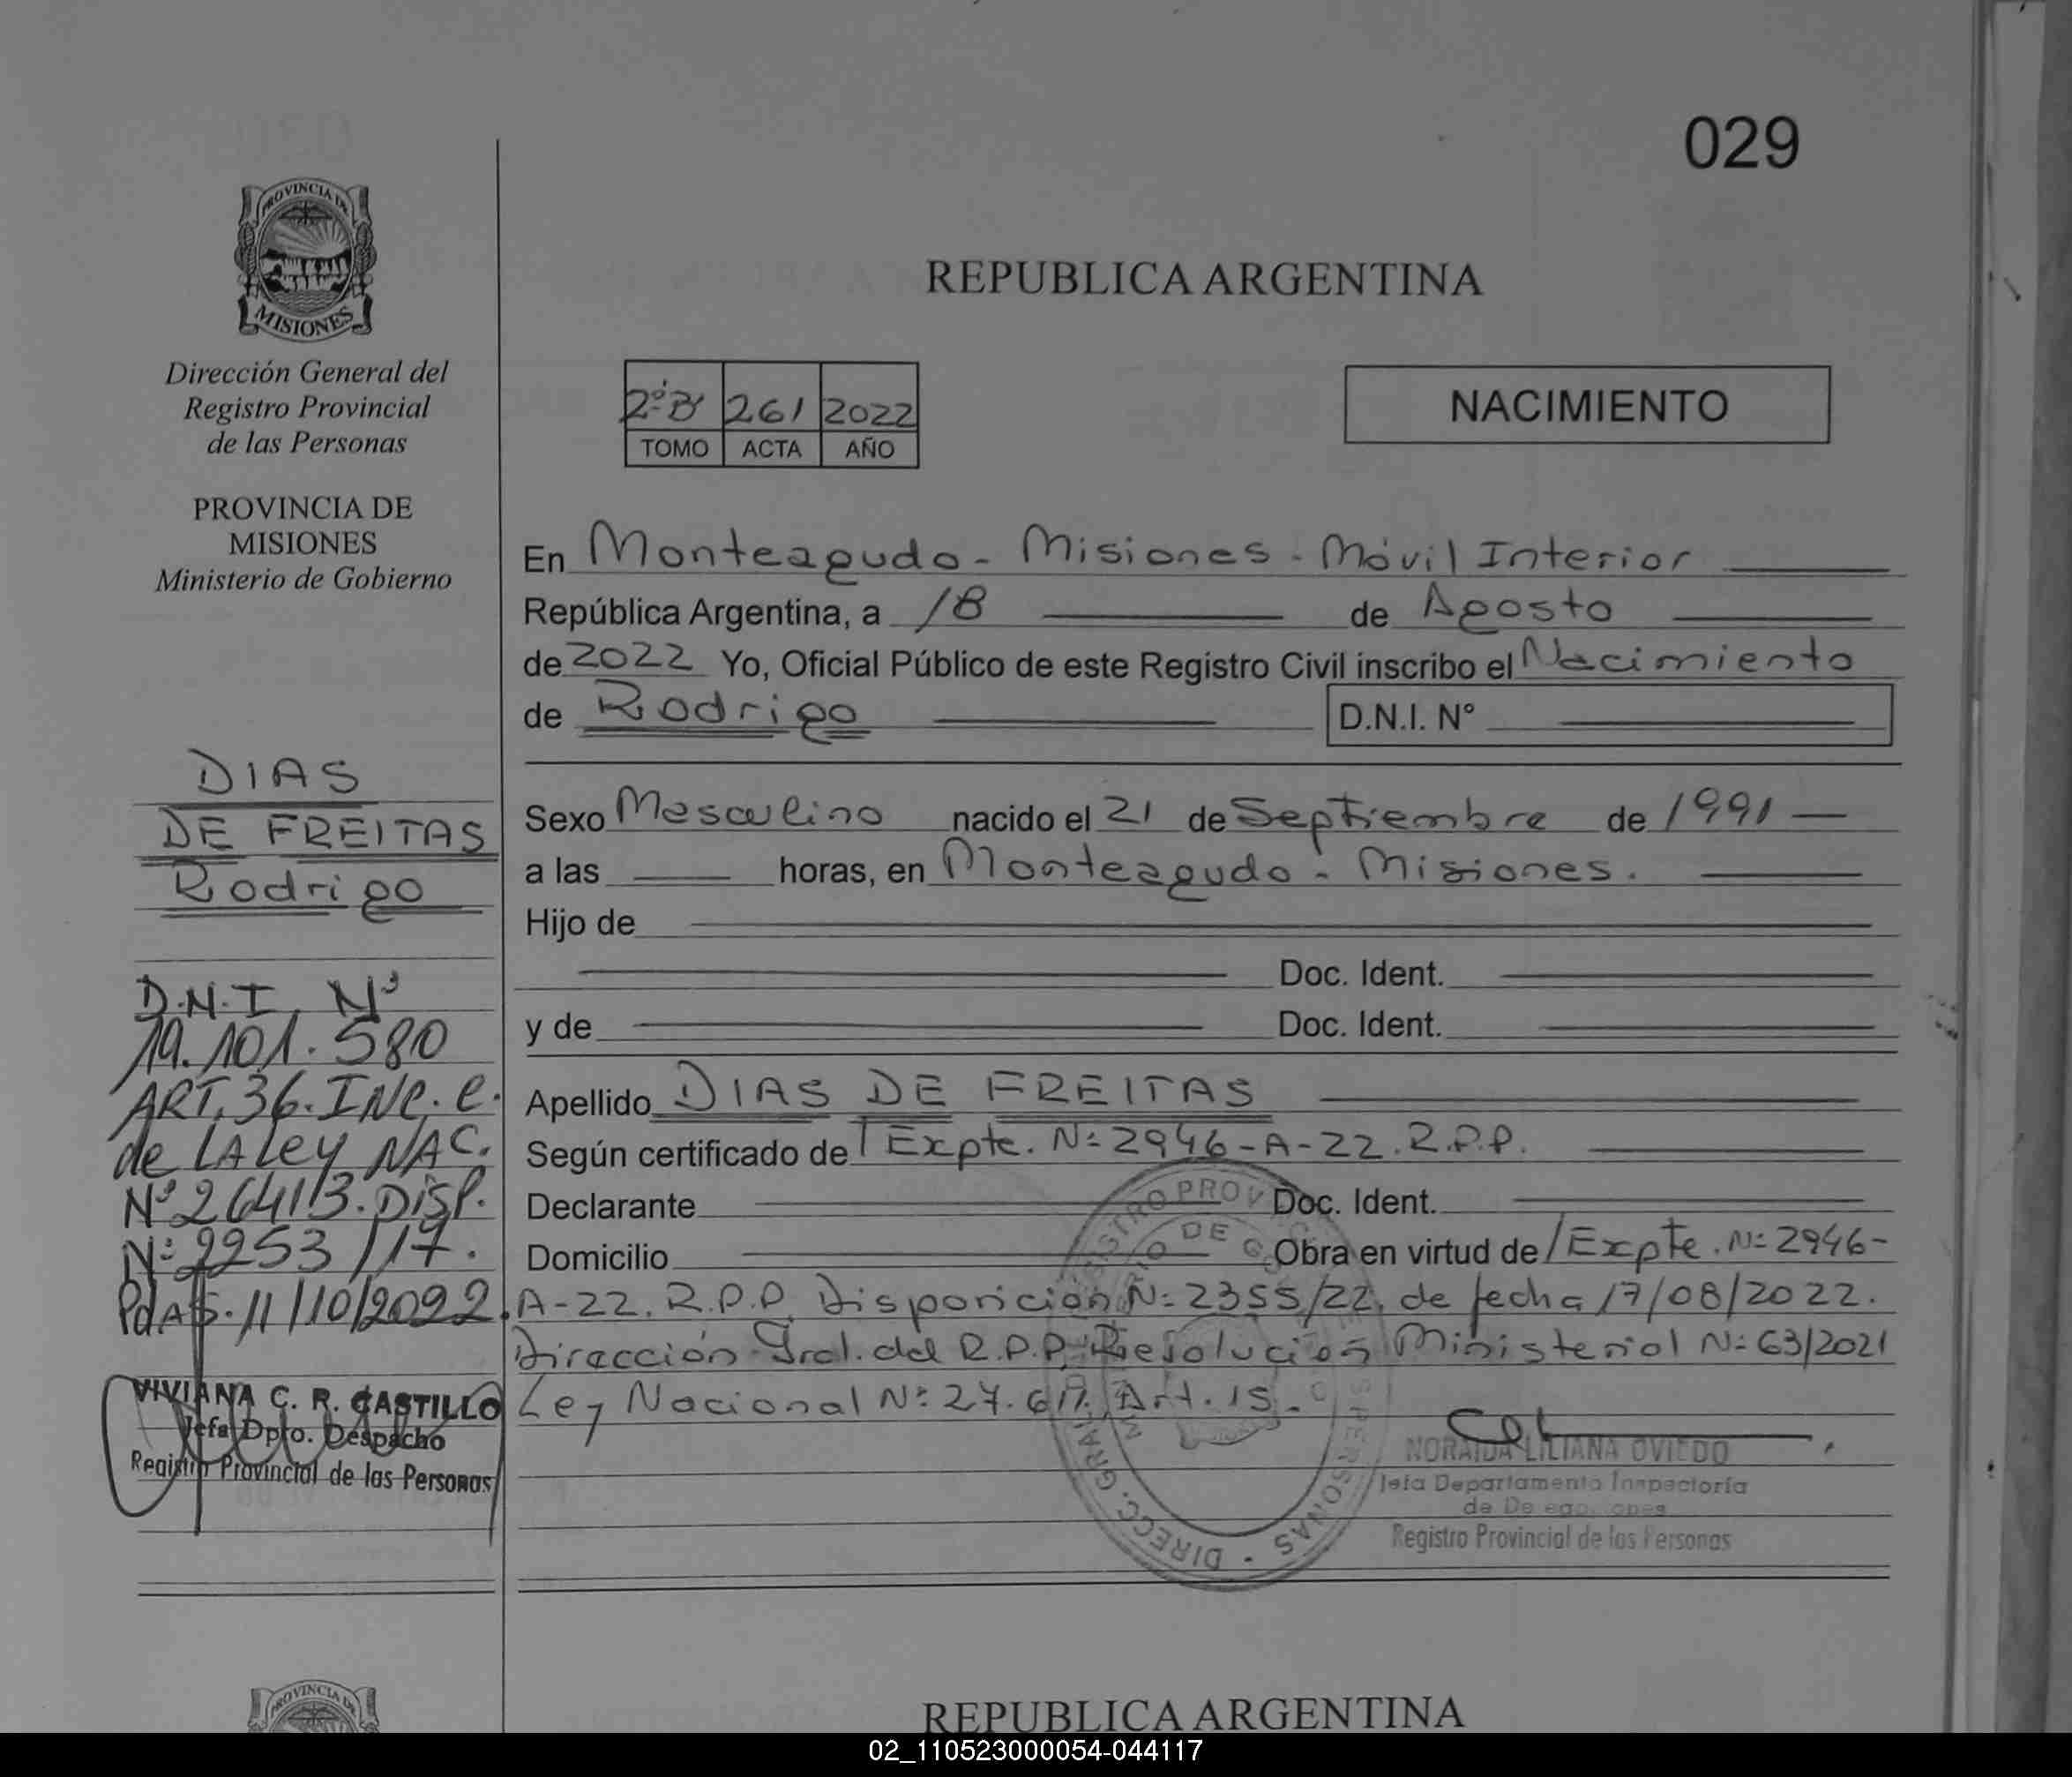 029
PROVINCIA DE
MISIONES
Dirección General del
Registro Provincial
de las Personas
PROVINCIA DE
MISIONES
Ministerio de Gobierno
DIAS
DE FREITAS
Rodrigo
D.N.I. Nº
19.101.580
ART. 36. INC. e.
de LA Ley NAC.
Nº 26413. DISP.
Nº 2253/17.
PdAS. 11/10/2022.
VIVIANA C. R. CASTILLO
Jefa Dpto. Despacho
Registro Provincial de las Personas
REPUBLICA ARGENTINA
2º B 261 2022
TOMO ACTA AÑO
NACIMIENTO
En Monteagudo - Misiones - Móvil Interior
República Argentina, a 18 de Agosto
de 2022 Yo, Oficial Público de este Registro Civil inscribo el Nacimiento
de Rodrigo D.N.I. N°
Sexo Masculino nacido el 21 de Septiembre de 1991
a las horas, en Monteagudo - Misiones.
Hijo de
Doc. Ident.
y de Doc. Ident.
Apellido DIAS DE FREITAS
Según certificado de / Expte. Nº 2946-A-22. R.P.P.
Declarante Doc. Ident.
Domicilio Obra en virtud de / Expte. Nº 2946-
A-22. R.P.P. Disposición Nº 2355/22, de fecha 17/08/2022.
Dirección Gral. del R.P.P. Resolución Ministerial Nº 63/2021
Ley Nacional Nº 27.611. Art. 15.
NORAIDA LILIANA OVIEDO
Jefa Departamento Inspectoría
de
Registro Provincial de las Personas
DIRECC. GRAL.
PROVINCIA DE
REPUBLICA ARGENTINA
02_110523000054-044117